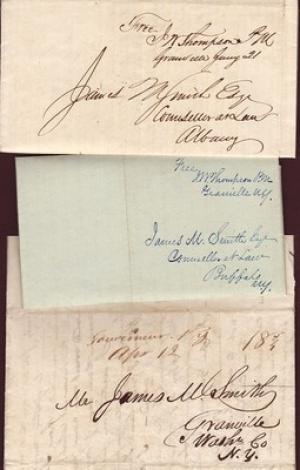 Free
J W Thompson P M
Granville Jany 21
James M Smith Esqr
Counsellor at Law
Albany
Free
J W Thompson P.M
Granville N.Y.
James M. Smith Esqr
Counsellor at Law
Buffalo
N.Y.
Gouverneur N Y
Apr 12
18¾
Mr James M Smith
Granville
Washn Co
N. Y.